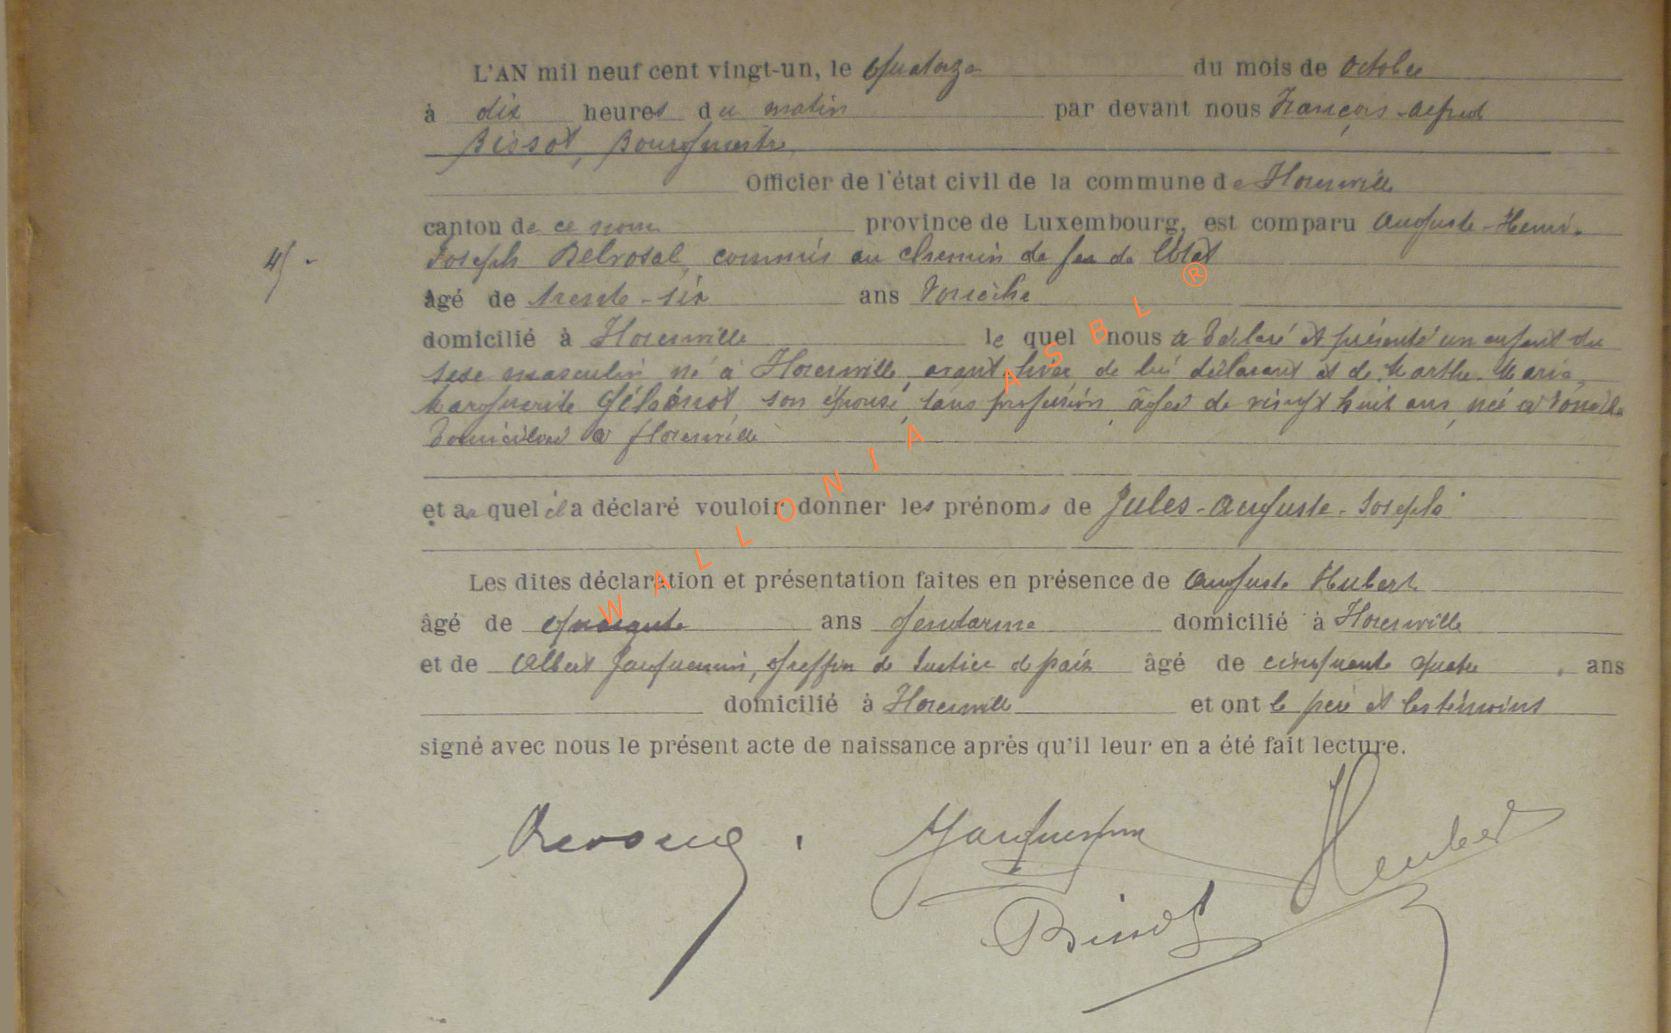 L'AN mil neuf cent vingt-un, le quatorze du mois de octobre
à dix heures du matin par devant nous François-Alfred
Bissot, Bourgmestre,
Officier de l'état civil de la commune de Florenville
canton de ce nom province de Luxembourg, est comparu Auguste-Henri-
Joseph commis au chemin de fer de l'état
45 -
âgé de trente-six ans
domicilié à Florenville le quel nous a déclaré et présenté un enfant du
sexe masculin né à Florenville, avant hier de lui déclarant et de Marthe-Maria
Marguerite son épouse, sans profession, âgée de vingt huit ans, née à
domiciliée à florenville
et auquel il a déclaré vouloir donner les prénoms de Jules-Auguste-Joseph
Les dites déclaration et présentation faites en présence de Auguste Hubert
âgé de quarante ans gendarme domicilié à Florenville
et de Albert Jacquemin, greffier de Justice de paix âgé de cinquante quatre ans
domicilié à Florenville et ont le père et les témoins
signé avec nous le présent acte de naissance après qu'il leur en a été fait lecture.
Jacquemin Hubert
Bissot
WALLONIA ASBL ®